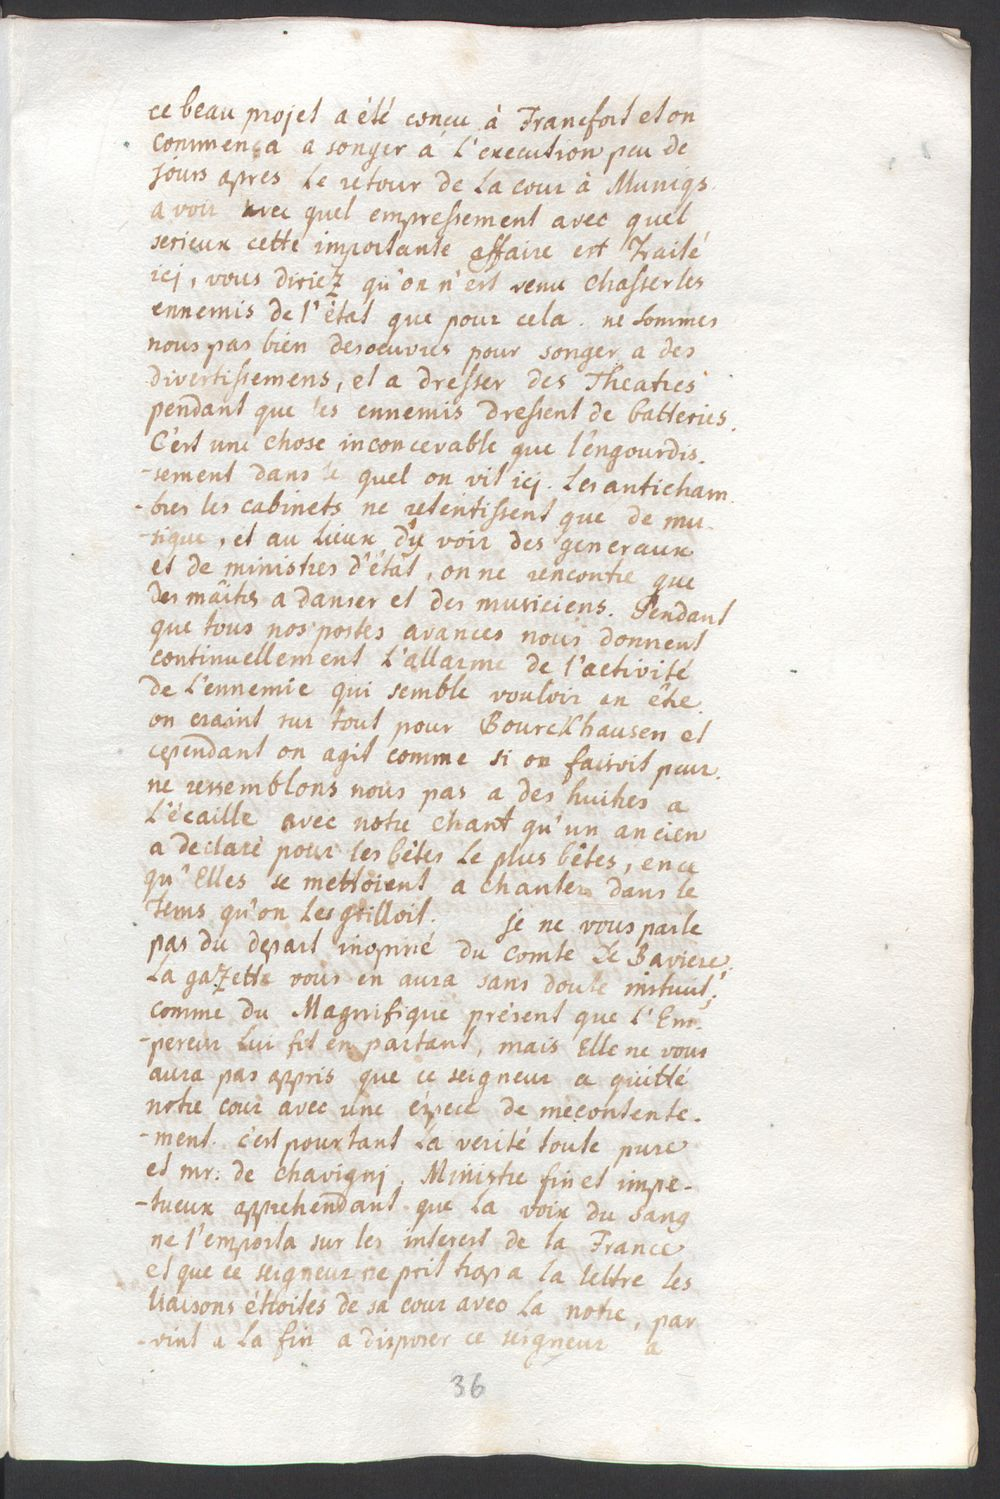 ce beau projet a été concu à Francfort et on
commença a songer à L'execution peu de
jours apres Le retour de La cour à Muniqs.
a voir avec quel empressement avec quel
serieux cette importante affaire est Traité
icj, vous diriez qu'on n'est venu chasser les
ennemis de l'êtat que pour cela. ne sommes
nous pas bien desoeuvres pour songer a des
divertissemens, et a dresser des Theatres
pendant que les ennemis dressent de batteries.
C'est une chose inconcevable que l'engourdis.
-sement dans le quel on vit icj. Les anticham
-bres les cabinets ne retentissent que de mu-
-sique, et au Lieux d'ÿ voir des generaux
et de ministres d'êtat, on ne rencontre que
des maîtres a danser et des musiciens. Pendant
que tous nos postes avances nous donnent
continuellement L'allarme de l'activité
de L'ennemie qui semble vouloir en être.
on craint sur tout pour Bourckhausen et
cependant on agit comme si on faisoit peur.
ne ressemblons nous pas a des huitres a
L'ècaille avec notre chant qu'un ancien
a declaré pour les bêtes Le plus bêtes, en ce
qu'Elles se mettoient a chanter dans le
tems qu'on Les grilloit. je ne vous parle
pas du depart inopiné du Comte De Baviere,
La gazette vous en aura sans doute instruit,
comme du Magnifique présent que L'Em-
-pereur Lui fit en partant, mais Elle ne vous
aura pas appris que ce seigneur a quitté
notre cour avec une éspece de mecontente-
-ment. c'est pourtant La verité toute pure
et mr: de Chavignj, Ministre fin et impe-
-tueux apprehendant que La voix du Sang
ne l'emporta sur les interest de la France
et que ce seigneur ne prit trop a la lettre les
liaisons étroites de sa cour avec La notre, par
-vint a La fin a disposer ce seigneur a
36